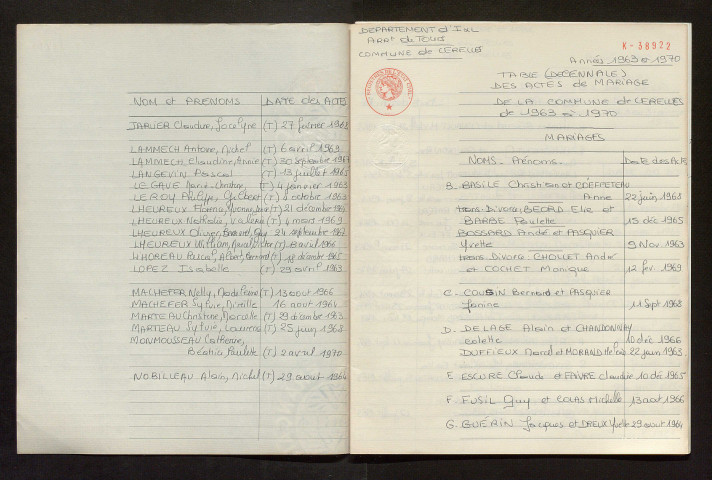 NOM et PRENOMS DATE des ACTES
Claudine, Jocelyne (T) 27 février 1968
LAMMECH Antoine, Michel (T) 6 avril 1969
LAMMECH Claudine, Annie (T) 30 septembre
LANGEVIN Pascal (T) 13 juillet 1965
LE GAVE Christine, (T) 4 janvier 1963
LE ROY Philippe, Gilbert (T) 4 octobre 1963
LHEUREUX Yvonne, (T) 21 décembre
LHEUREUX Nathalie, Valérie (T) 4 mars 1969
LHEUREUX Olivier, Guy 24 septembre
LHEUREUX William, Victor (T) 8 avril 1966
LHOREAU Pascal, Albert, Bernard (T) 18 décembre 1965
LOPEZ Isabelle (T) 29 avril 1963
MACHEFER Nelly, (T) 13 août 1966
MACHEFER Sylvie, Mireille 16 août 1964
MARTEAU Christine, Marcelle (T) 29 décembre 1963
MARTEAU Sylvie, (T) 25 juin 1968
MONMOUSSEAU Catherine,
Béatrice, Paulette (T) 2 avril 1970
NOBILLEAU Alain, Michel (T) 29 août 1964
DEPARTEMENT d'I &L
ARRt de TOURS
COMMUNE de CERELLES
K-38922
Années 1963 à 1970
TABLE (DECENNALE)
DES ACTES de MARIAGE
DE LA COMMUNE de CERELLES
de 1963 à 1970
MARIAGES
NOMS. Prénoms.
B. BASILE Christian et
Anne 22 juin 1968
Elie et
BARBE Paulette 15 déc 1965
BOSSARD André et PASQUIER
Yvette 9 Nov. 1963
CHOLLET André
et COCHET Monique 12 fév. 1969
C. COUSIN Bernard et PASQUIER
Janine 11 Sept 1968
D. DELAGE Alain et CHANDONNAY
Colette 10 déc 1966
DUFFIEUX Marcel et MORAND 22 juin 1963
E. ESCURE Claude et FAVRE Claudine 10 déc 1965
F. FUSIL Guy et COLAS Michelle 13 août 1966
G. GUÉRIN Jacques et DREUX Yvette 29 août 1964